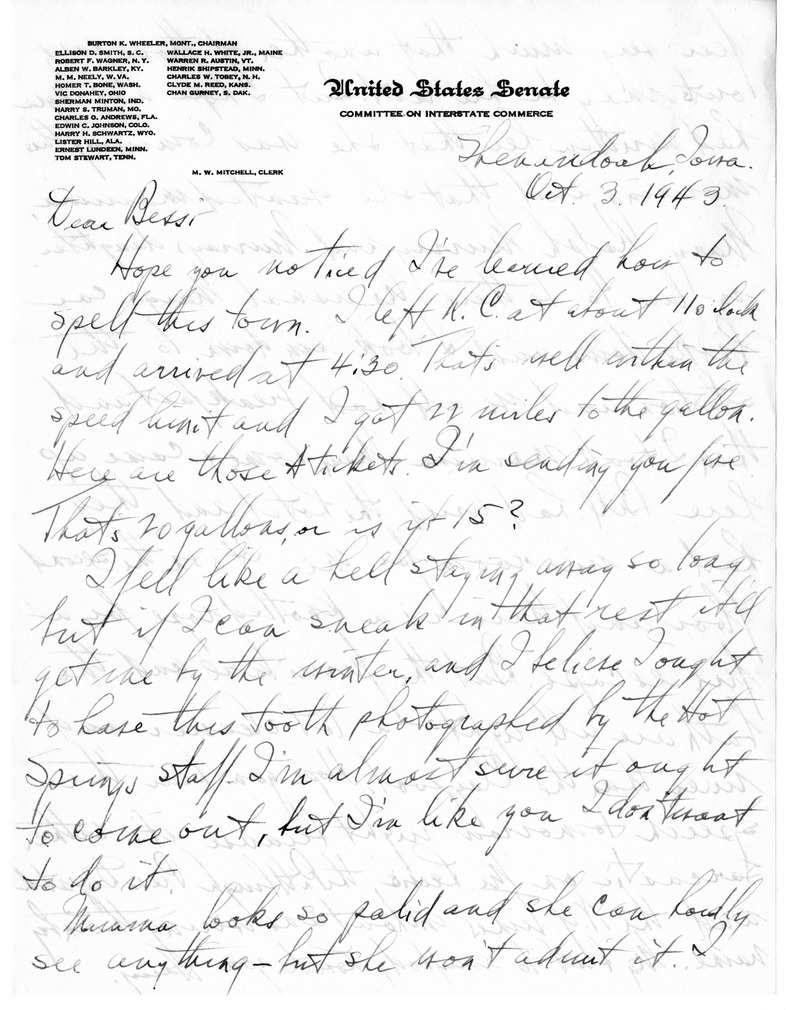 BURTON K. WHEELER, MONT., CHAIRMAN
ELLISON D. SMITH, S. C.
ROBERT F. WAGNER, N. Y.
ALBEN W. BARKLEY, KY.
M. M. NEELY, W. VA.
HOMER T. BONE, WASH.
VIC DONAHEY, OHIO
SHERMAN MINTON, IND.
HARRY S. TRUMAN, MO.
CHARLES O. ANDREWS, FLA.
EDWIN C. JOHNSON, COLO.
HARRY H. SCHWARTZ, WYO.
LISTER HILL, ALA.
ERNEST LUNDEEN, MINN.
TOM STEWART, TENN.
WALLACE H. WHITE, JR., MAINE
WARREN R. AUSTIN, VT.
HENRIK SHIPSTEAD, MINN.
CHARLES W. TOBEY, N. H.
CLYDE M. REED, KANS.
CHAN GURNEY, S. DAK.
M. W. MITCHELL, CLERK
United States Senate
COMMITTEE ON INTERSTATE COMMERCE
Shenandoah, Iowa.
Oct. 3, 1943.
Dear Bess:
Hope you noticed I've learned how to
spell this town. I left K. C. at about 11 o'clock
and arrived at 4:30. That's well within the
speed limit and I got 22 miles to the gallon.
Here are those A tickets. I'm sending you five
That's 20 gallons, or is it 15?
I fell like a hell staying away so long
but if I can sneak in that rest it'll
get me by the winter, and I believe I ought
to have this tooth photographed by the Hot
Springs staff. I'm almost sure it ought
to come out, but I'm like you I don't want
to do it.
Mamma looks so palid and she can hardly
see anything - but she won't admit it. I